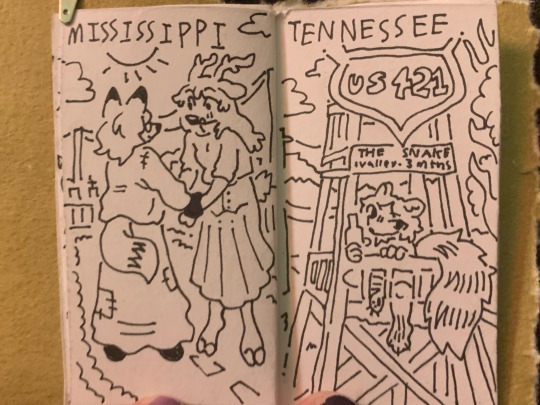 MISSISSIPPI &
TENNESSEE
US 421
THE SNAKE
1 valley · 3 mtns